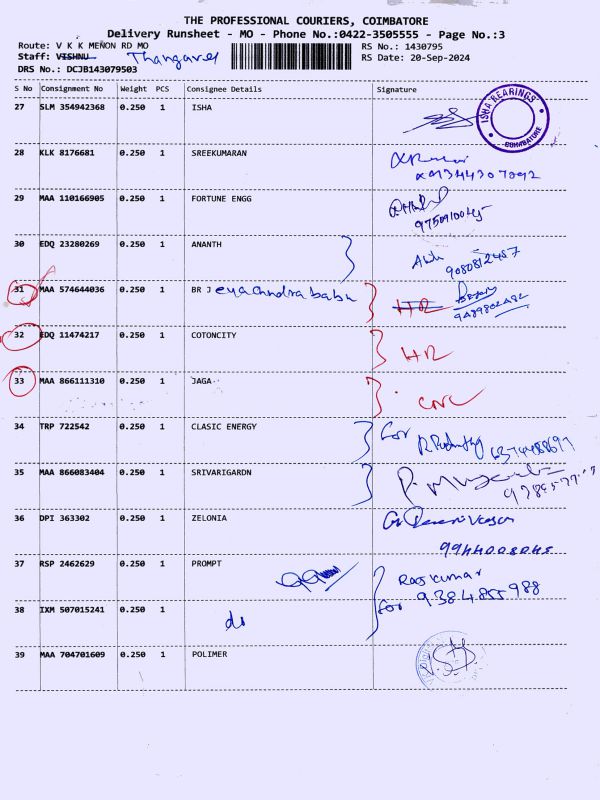 THE PROFESSIONAL COURIERS, COIMBATORE
Delivery Runsheet - MO - Phone No.:0422-3505555 - Page No.:3
Route: V K K MENON RD MO
RS No.: 1430795
Staff: VISHNU Thangavel
RS Date: 20-Sep-2024
DRS No.: DCJB143079503
S No Consignment No Weight PCS Consignee Details Signature
27 SLM 354942368 0.250 1 ISHA
ISHA BEARINGS COIMBATORE
28 KLK 8176681 0.250 1 SREEKUMARAN
29 MAA 110166905 0.250 1 FORTUNE ENGG
30 EDQ 23280269 0.250 1 ANANTH
9080812487
31 MAA 574644036 0.250 1 BR Jeyachndrababu HR
9489802482
32 EDQ 11474217 0.250 1 COTONCITY HR
33 MAA 866111310 0.250 1 JAGA CNC
34 TRP 722542 0.250 1 CLASIC ENERGY for
35 MAA 866083404 0.250 1 SRIVARIGARDN
36 DPI 363302 0.250 1 ZELONIA
9944008048
37 RSP 2462629 0.250 1 PROMPT Raj kumar
for 9384855988
38 IXM 507015241 0.250 1 do
39 MAA 704701609 0.250 1 POLIMER